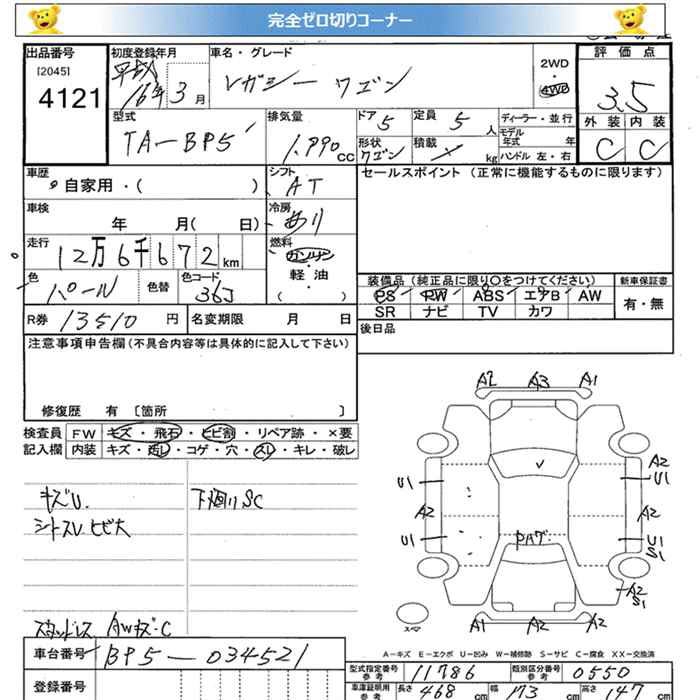 完全ゼロ切りコーナー
出品番号 初度登録年月 車名・グレード 評価点
[2045] 4121 平成 16年3月 レガシー ワゴン 2WD・4WD 3.5
型式 排気量 ドア 定員 ディーラー・並行 外装 内装
TA-BP5 1,990cc 5 5人 モデル年式 年 C C
形状 ワゴン 積載 kg ハンドル 左・右
車歴 シフト セールスポイント (正常に機能するものに限ります)
・自家用・( ) AT
車検 冷房
年 月( 日) あり
走行 燃料
12万6千672km ガソリン・軽油・( )
色 色替 色コード 装備品 (純正品に限り○をつけてください) 新車保証書
パール 36J PS PW ABS エアB AW 有・無
SR ナビ TV カワ
R券 13510円 名変期限 月 日 後日品
注意事項申告欄(不具合内容等は具体的に記入して下さい)
修復歴 有 [箇所 ]
検査員 FW キズ・飛石・ヒビ割・リペア跡・×要
記入欄 内装 キズ・汚レ・コゲ・穴・スレ・キレ・破レ
キズU. 下廻りSC
シトスレヒビ大
スタッドレス AWキズ・C
A2 A3 A1
U1 A2 U1
A2 A2
U1 U1 S1
A2 S1
A1 A2 A2
スペア
A-キズ E-エクボ U-凹み W-補修跡 S-サビ C-腐食 XX-交換済
車台番号 BP5-034521
型式指定番号 参考 11786 類別区分番号 参考 0550
登録番号
車庫証明用 参考 長さ 468cm 幅 173cm 高さ 147cm